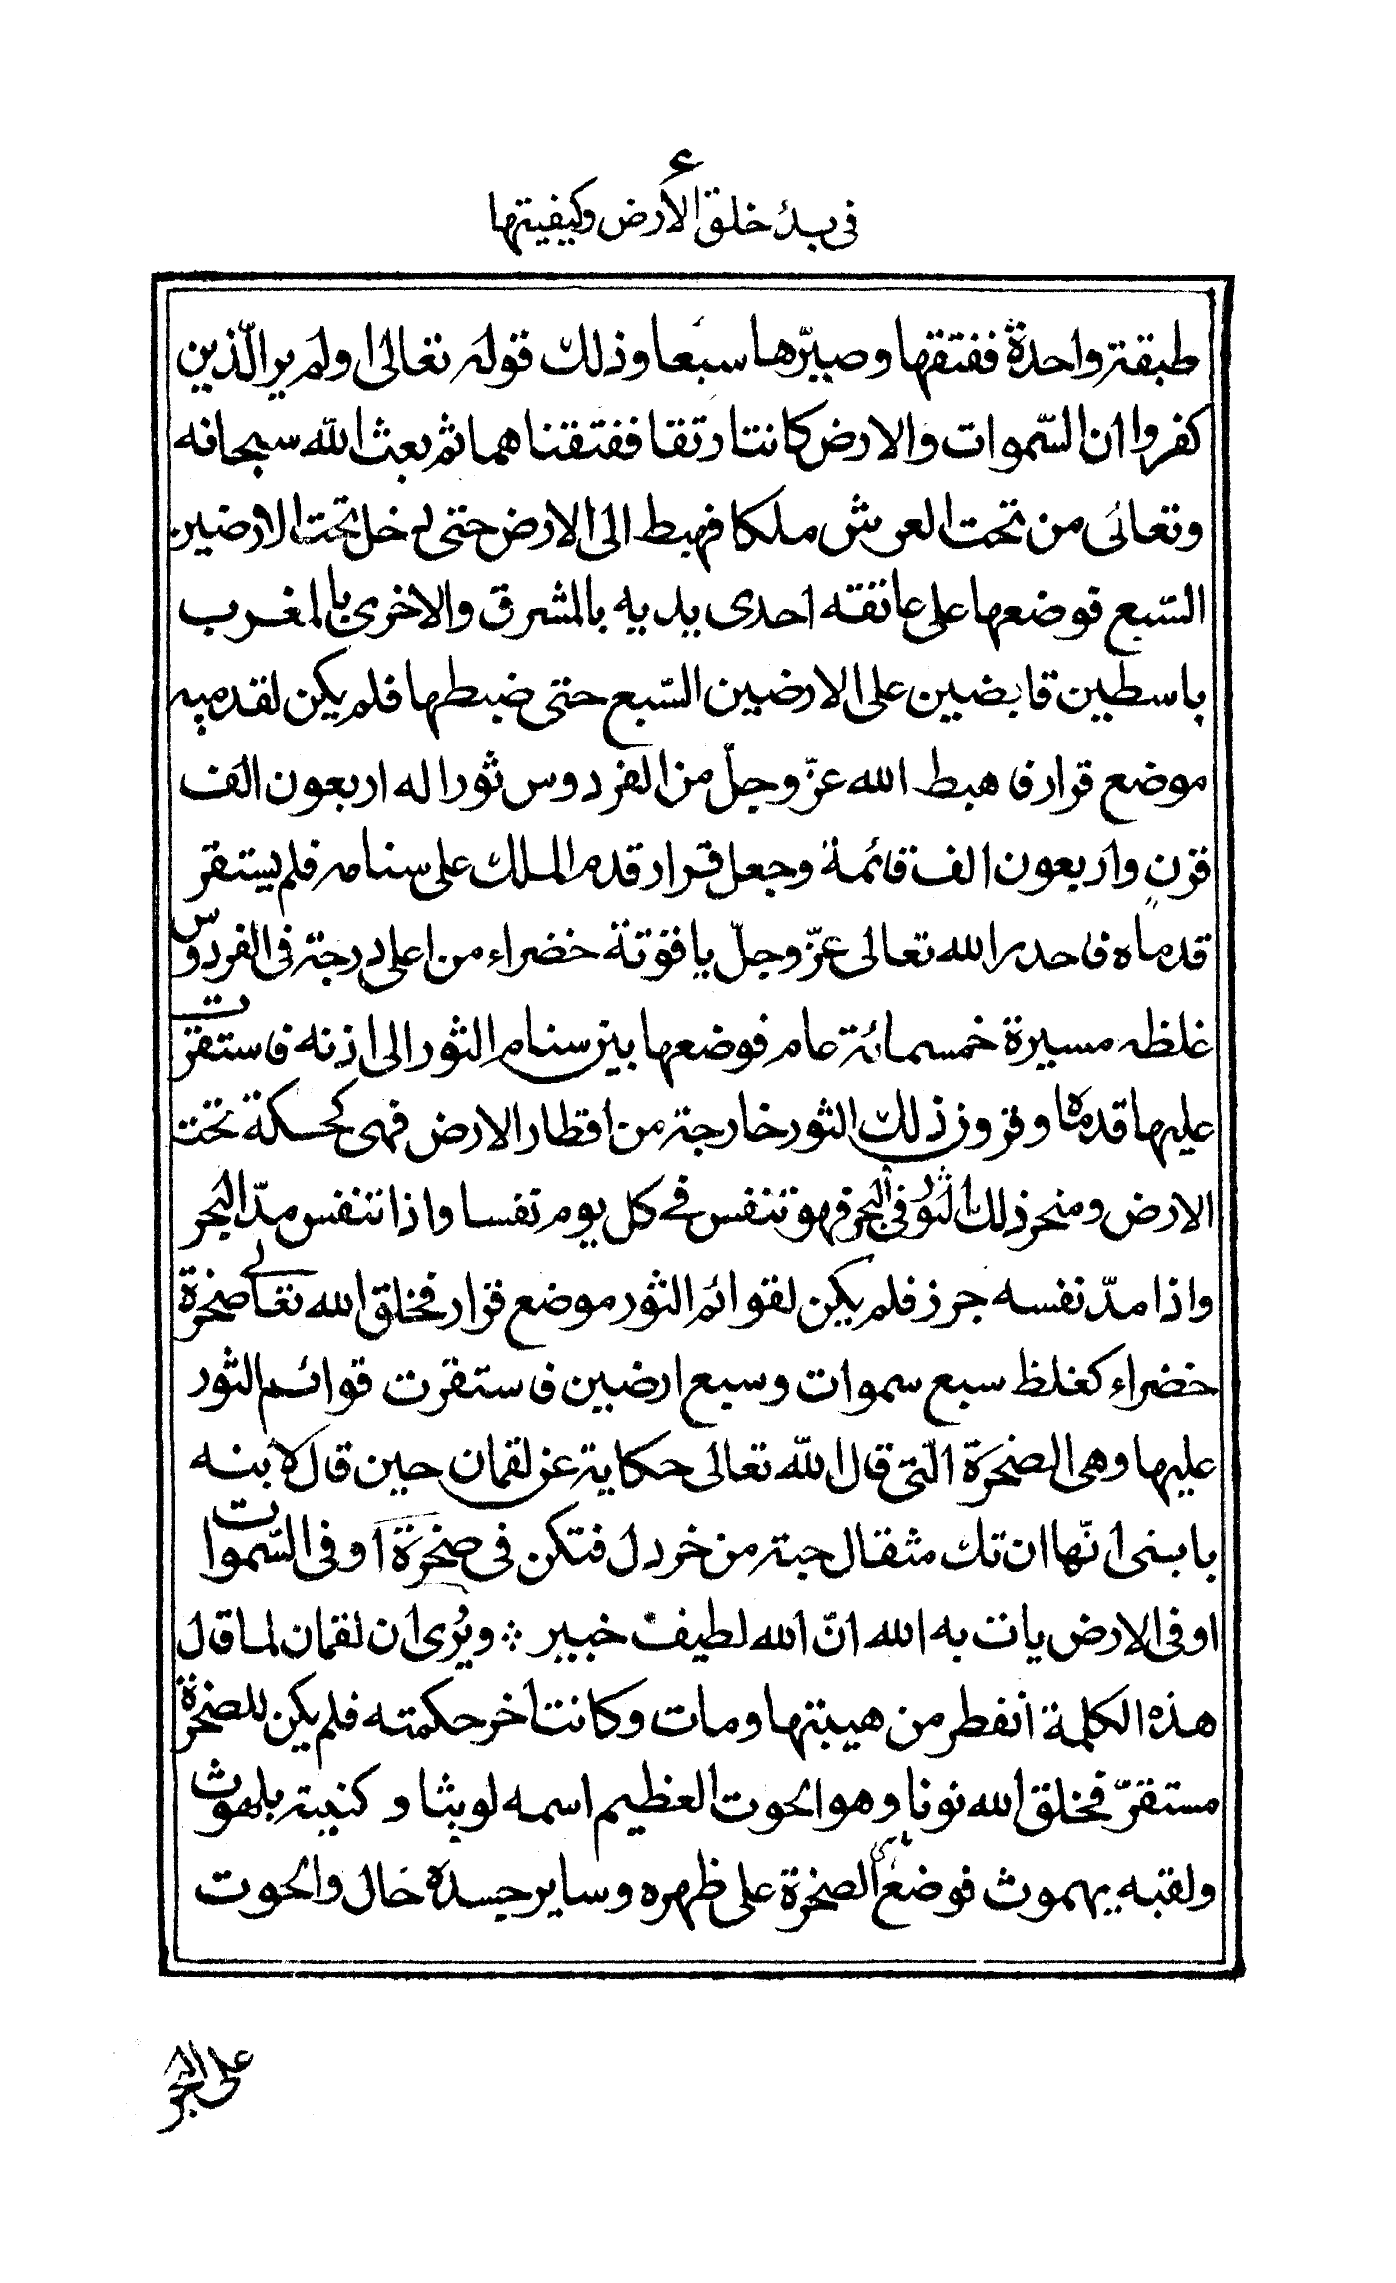 ٤
في بدء خلق الأرض وكيفيتها
طبقة واحدة ففتقها وصيّرها سبعا وذلك قوله تعالى اولم ير الّذين
كفروا ان السّموات والارض كانتا رتقا ففتقناهما ثم بعث الله سبحانه
وتعالى من تحت العرش ملكا فهبط الى الارض حتى دخل تحت الارضين
السّبع فوضعها على عاتقه احدى يديه بالمشرق والاخرى بالمغرب
باسطين قابضين على الارضين السّبع حتى ضبطها فلم يكن لقدميه
موضع قرار فاهبط الله عزّ وجلّ من الفردوس ثورا له اربعون الف
قرن واربعون الف قائمة وجعل قرار قدم الملك على سنامه فلم يستقر
قدماه فاحدر الله تعالى عزّ وجلّ ياقوتة خضراء من اعلى درجة في الفردوس
غلظه مسيرة خمسمائة عام فوضعها بين سنام الثور الى اذنه فاستقرّت
عليها قدماه وقرون ذلك الثور خارجة من اقطار الارض فهى كحسكة تحت
الارض ومنخر ذلك الثور في البحر فهو تنفس في كل يوم نفسا واذا تنفس مدّ البحر
واذا مدّ نفسه جرز فلم يكن لقوائم الثور موضع قرار فخلق الله تعالى صخرة
خضراء كغلظ سبع سموات وسبع ارضين فاستقرت قوائم الثور
عليها وهى الصخرة الّتي قال الله تعالى حكاية عن لقمان حين قال لابنه
يا بنى انّها ان تك مثقال حبة من خردل فتكن في صخرة او في السّموات
او في الارض يات به الله انّ الله لطيف خبير ؞ ويُرى ان لقمان لما قال
هذه الكلمة انفطر من هيبتها ومات وكانت آخر حكمته فلم يكن للصخرة
مستقرّ فخلق الله نونا وهو الحوت العظيم اسمه لوبثا وكنيته بلهوث
ولقبه بهموث فوضع الصخرة على ظهره وساير جسده خال والحوت
على البحر